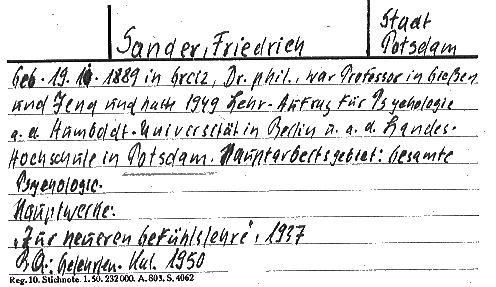 Sander, Friedrich
Stadt
Potsdam
Geb. 19. 11. 1889 in Greiz, Dr. phil., war Professor in Gießen
und Jena und hatte 1949 Lehr-Auftrag für Psychologie
a. d. Humboldt-Universität in Berlin u. a. d. Landes-
Hochschule in Potsdam. Hauptarbeitsgebiet: Gesamte
Psychologie.
Hauptwerke:
„Zur neueren Gefühlslehre", 1937
B.Q.: Gelehrten-Kal. 1950
Reg. 10. Stichnote. 1. 50. 232000. A. 803. S. 4062